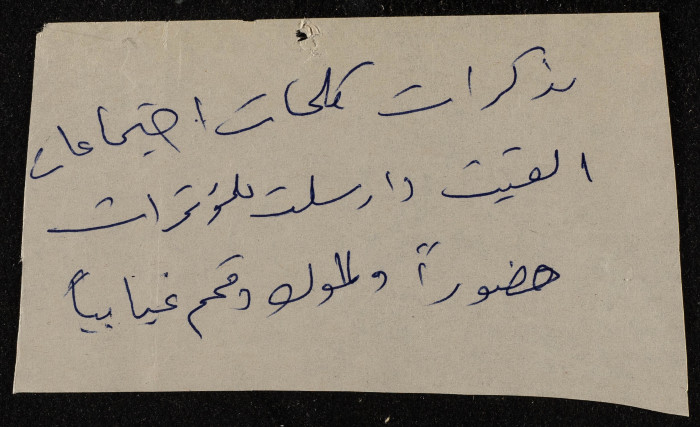 مذكرات كلمات اجتماعات
القيت وارسلت للمؤتمرات
حضوراً ولملوك وقمم غيابياً